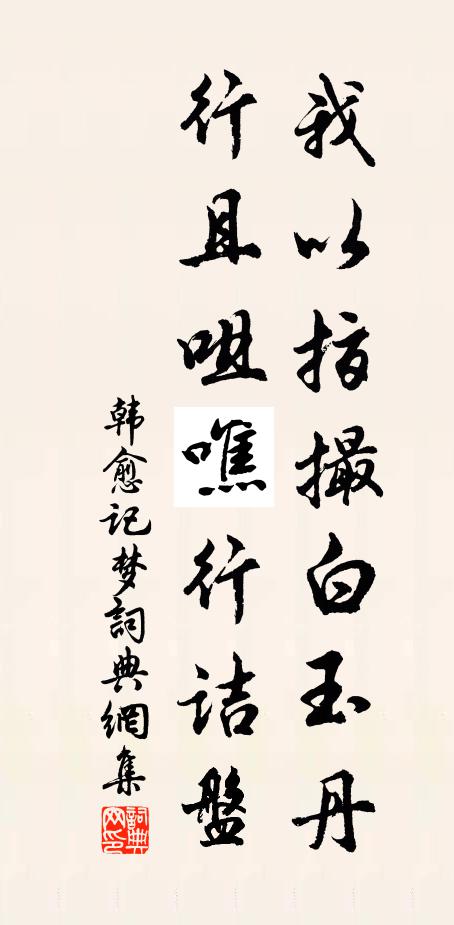 我以指撮白玉丹
行且咀噍行诘盤
韩愈记梦詞典網集
詞典网印